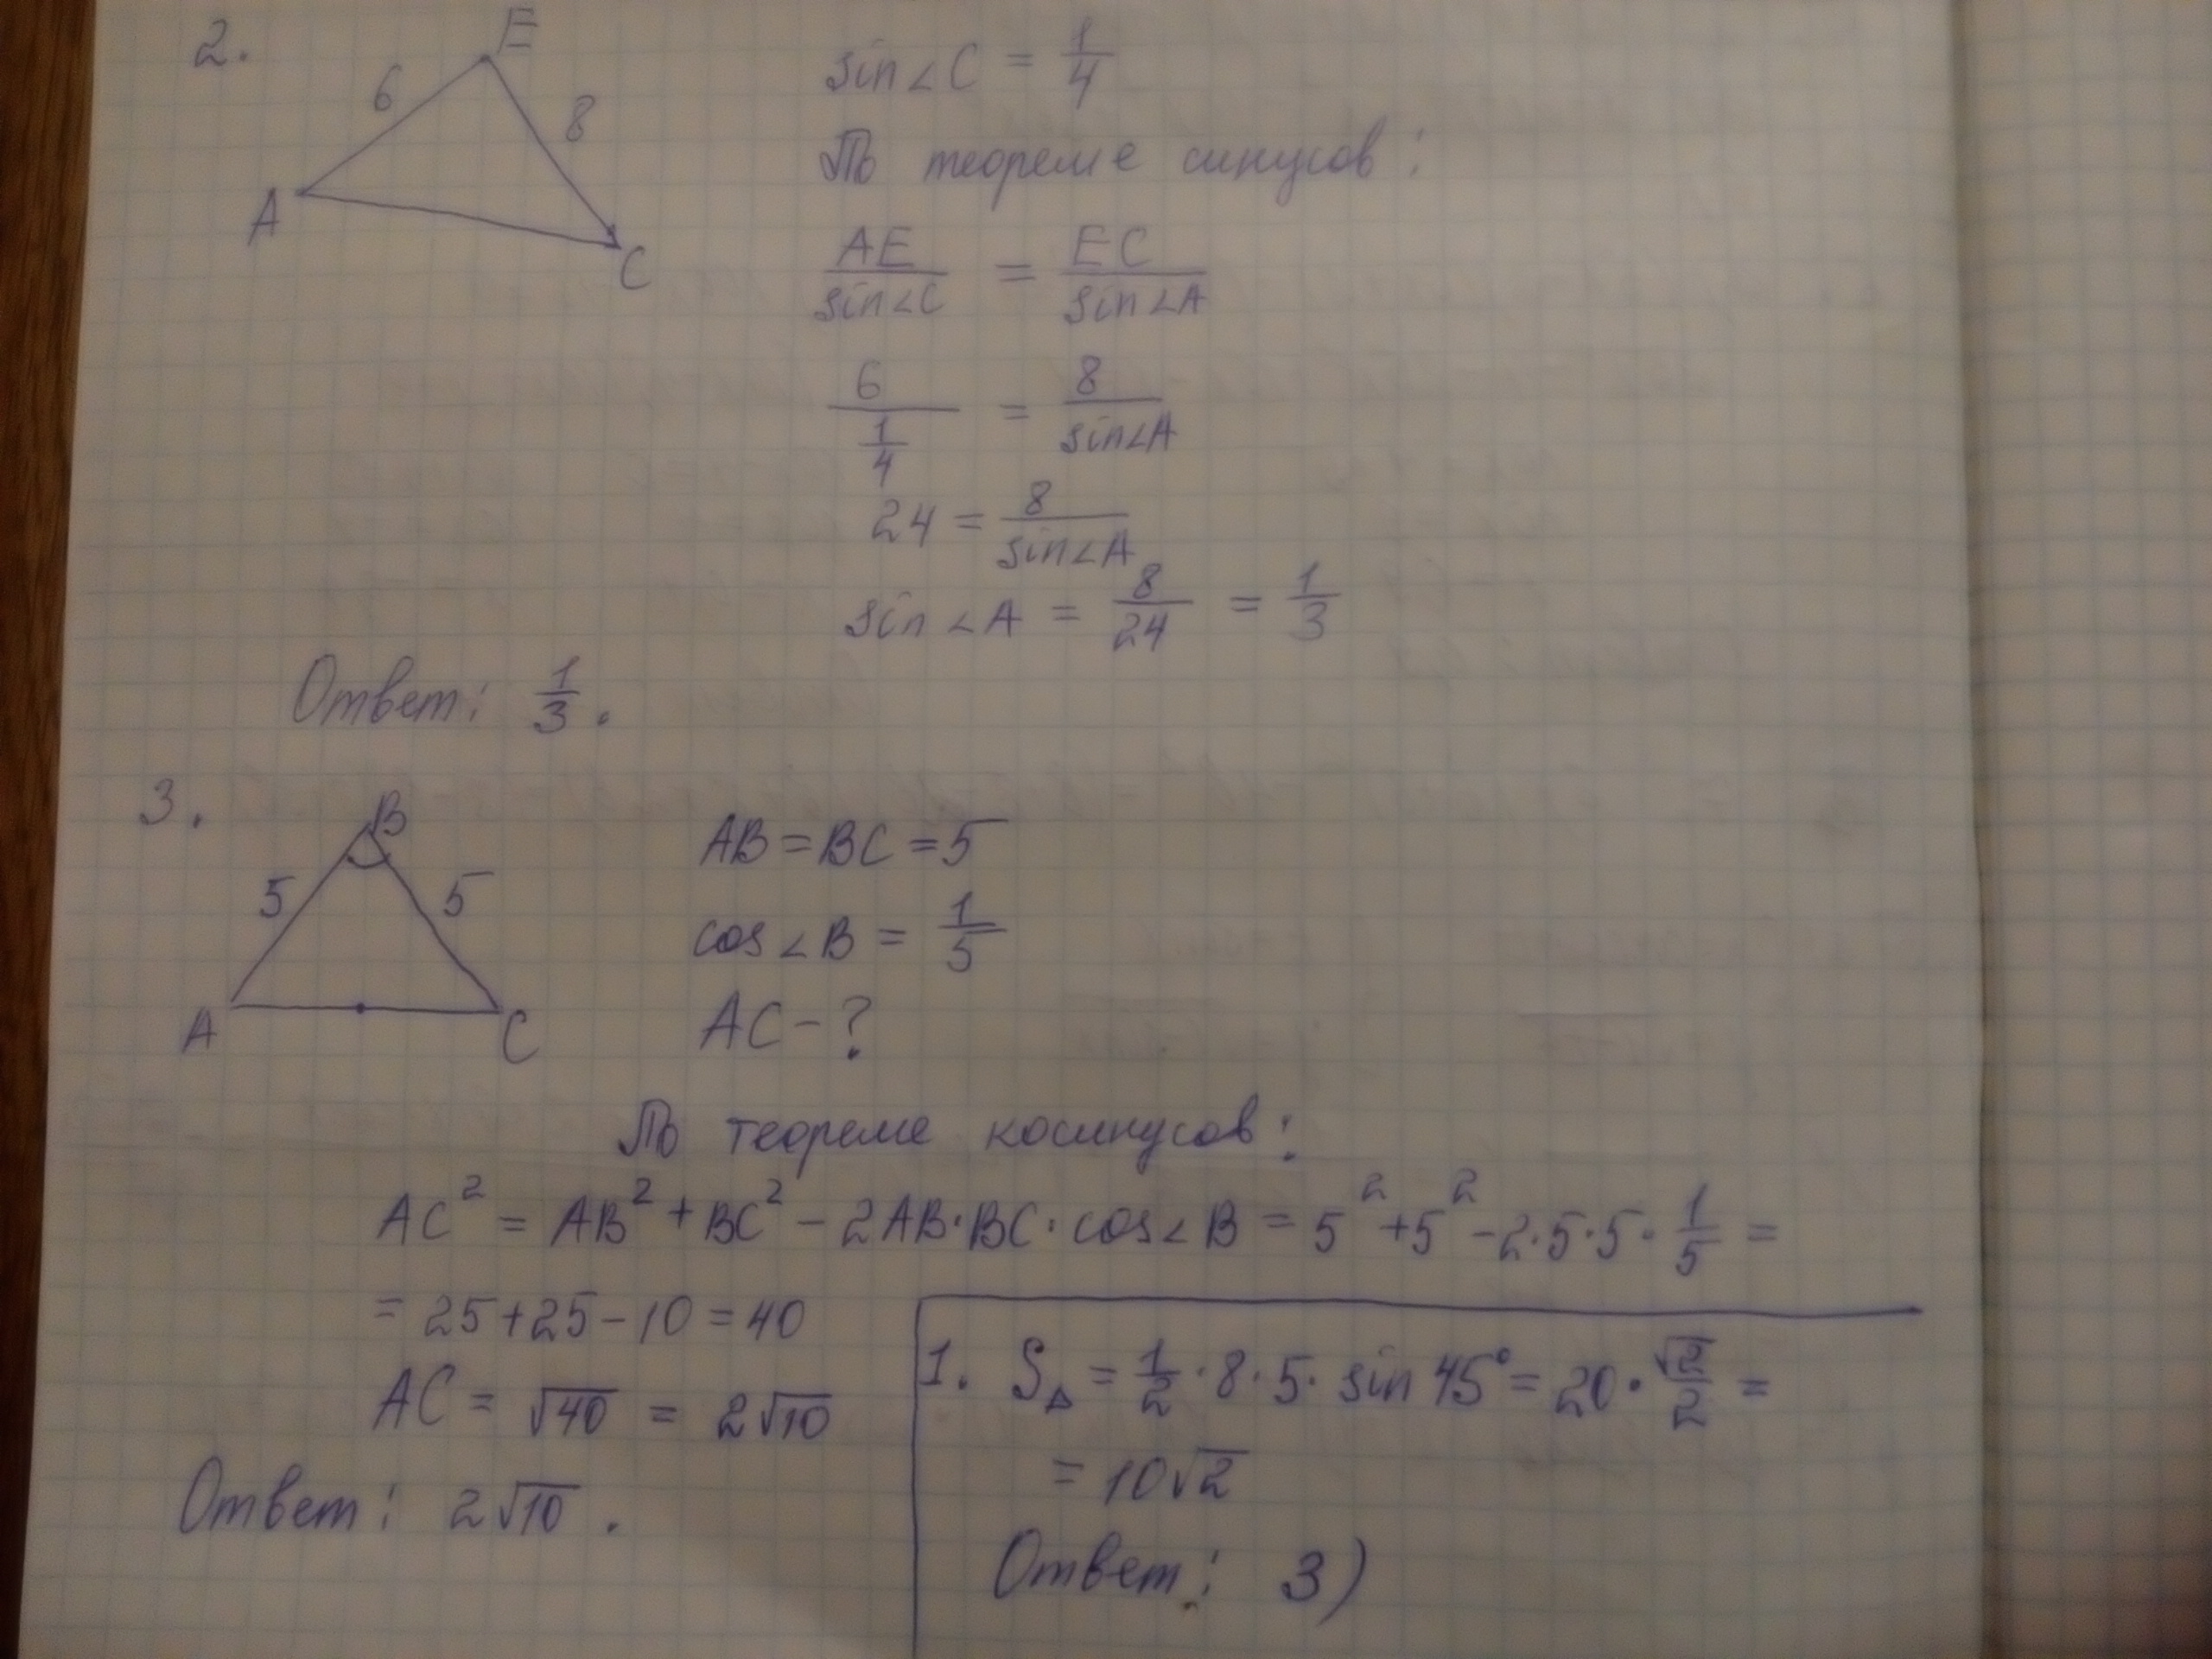 2.
E
6
8
A
C
sin∠C = 1/4
По теореме синусов:
AE/sin∠C = EC/sin∠A
6/(1/4) = 8/sin∠A
24 = 8/sin∠A
sin∠A = 8/24 = 1/3
Ответ: 1/3.
3.
B
5
5
A
C
AB = BC = 5
cos∠B = 1/5
AC - ?
По теореме косинусов:
AC² = AB² + BC² - 2AB·BC·cos∠B = 5² + 5² - 2·5·5·1/5 =
= 25 + 25 - 10 = 40
AC = √40 = 2√10
Ответ: 2√10.
1. S△ = 1/2·8·5·sin 45° = 20·√2/2 =
= 10√2
Ответ: 3)